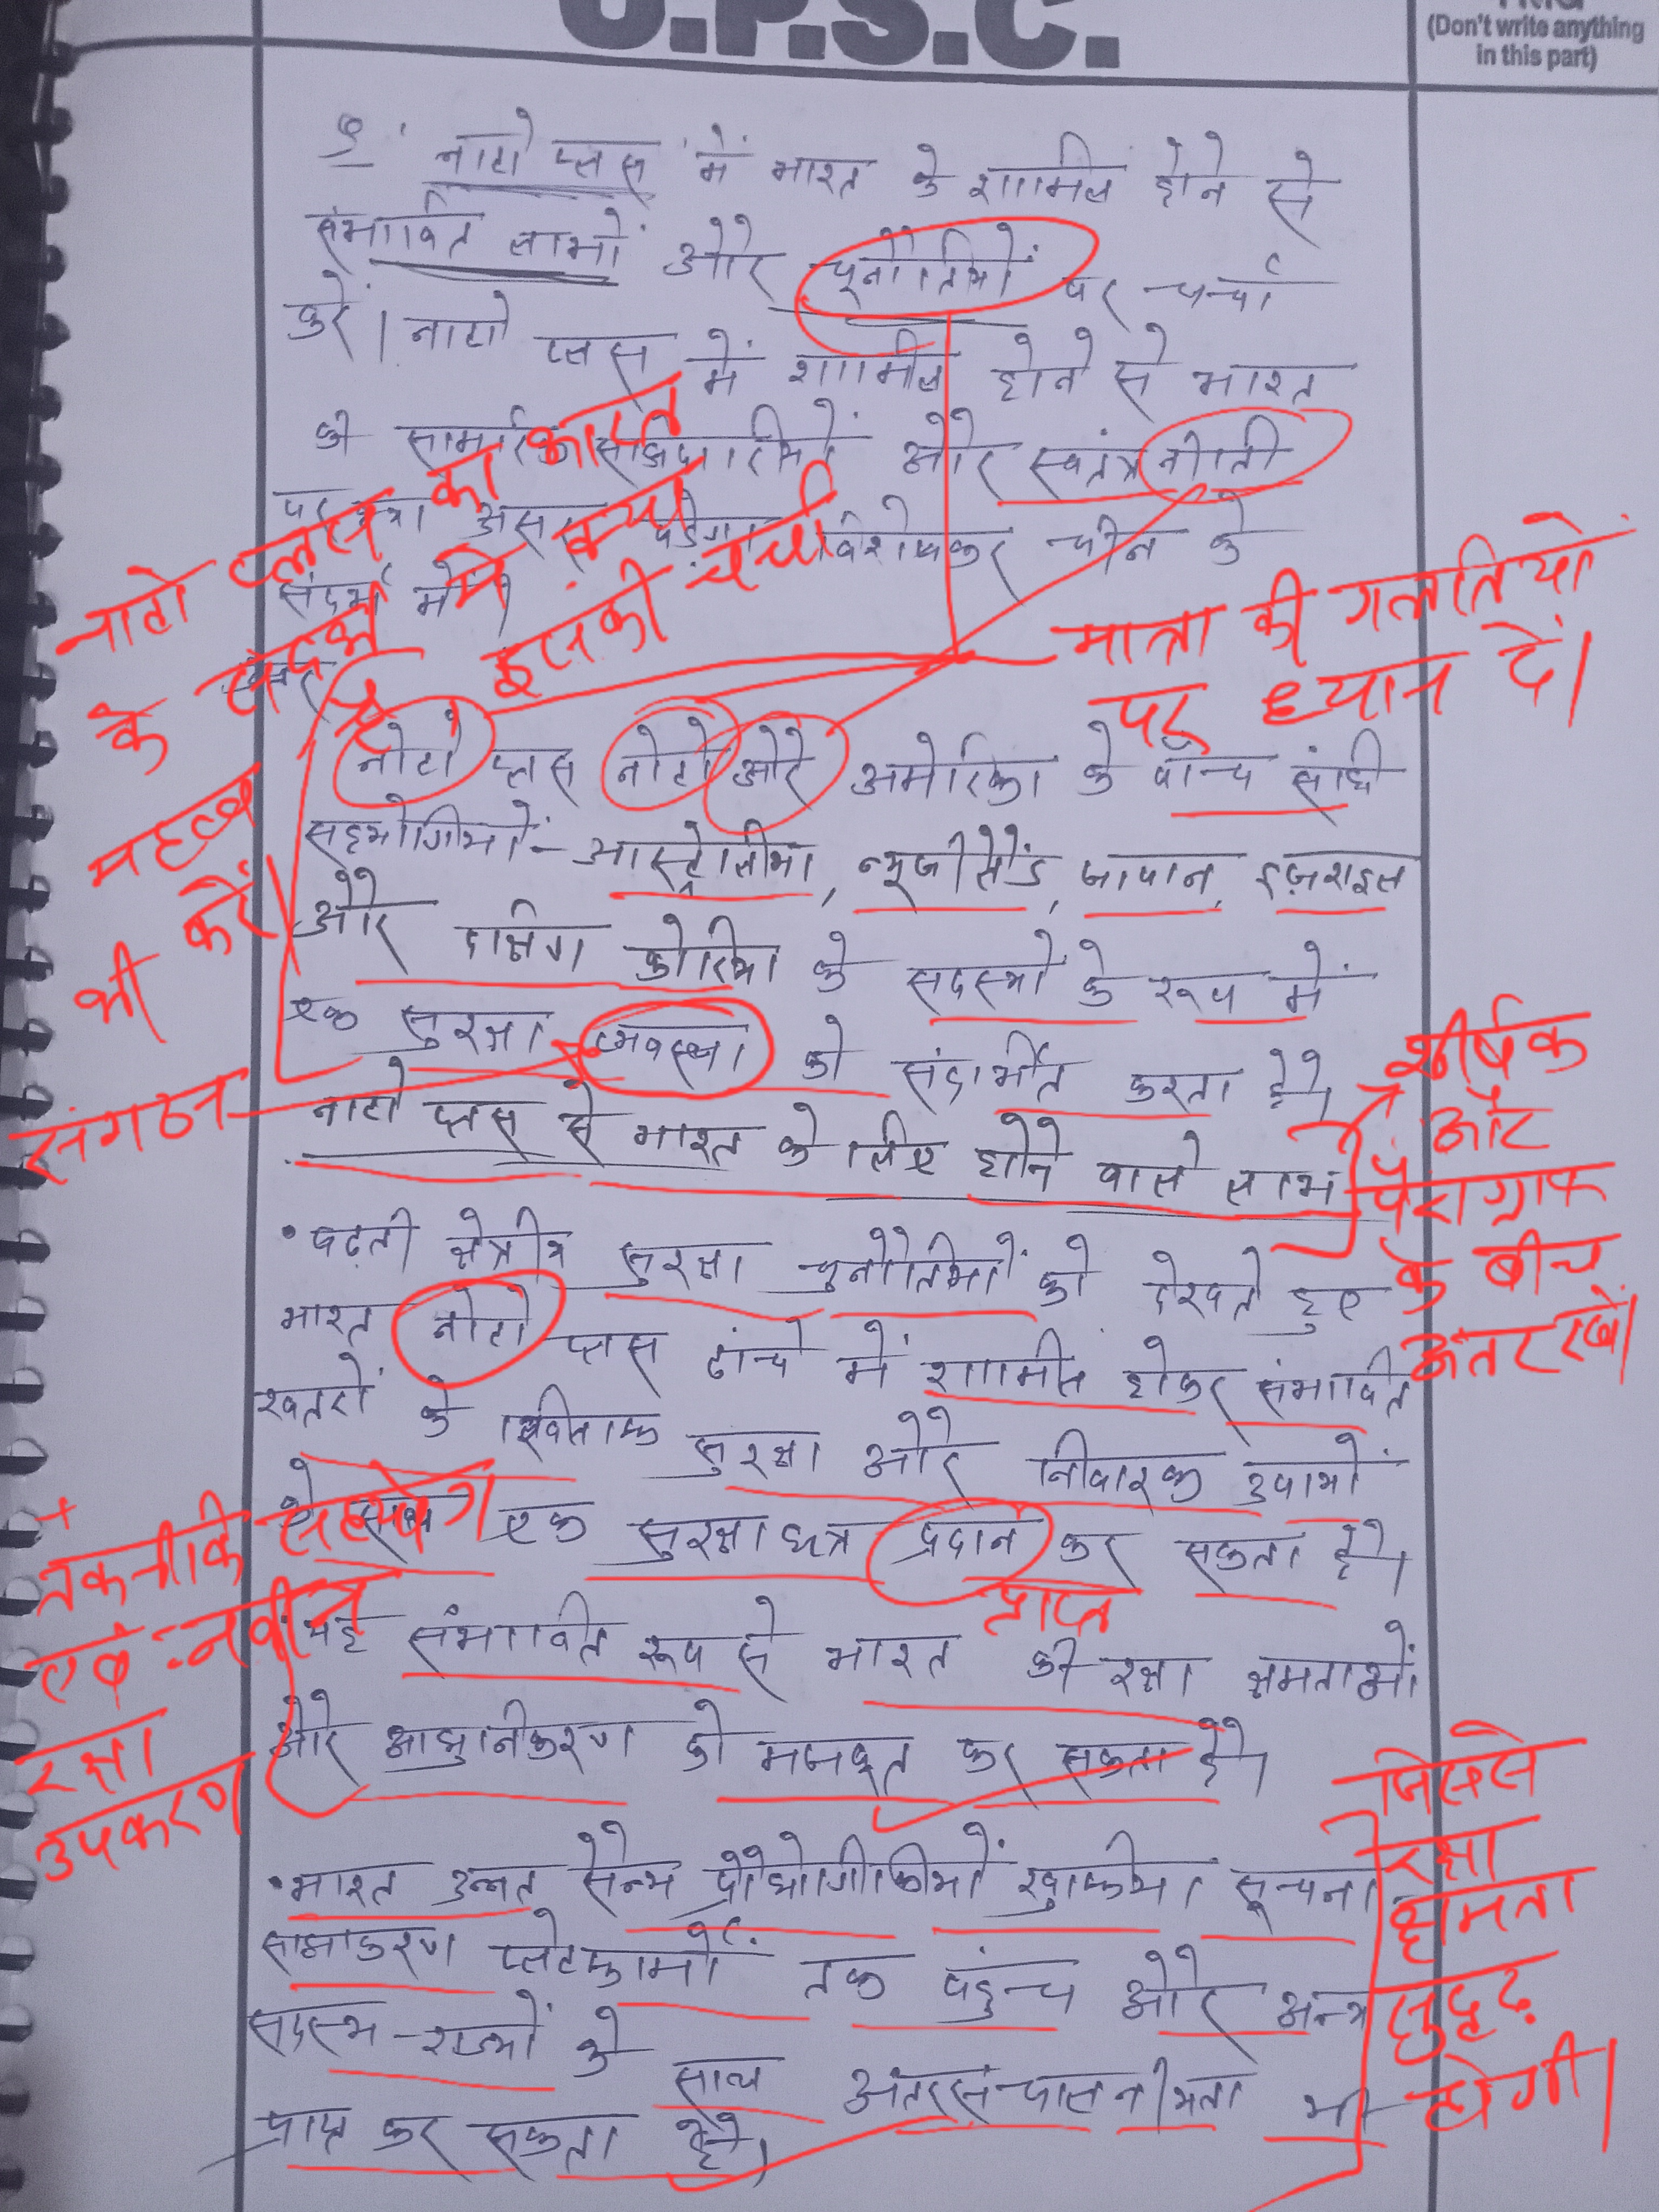 U.P.S.C.
(Don't write anything
in this part)
9. 'नाटो प्लस' में भारत के शामिल होने से
संभावित लाभों और चूनौतियों पर चर्चा
करें। नाटो प्लस में शामील होने से भारत
की और स्वतंत्र नीती
पर क्या असर पड़ेगा विशेषकर चीन के
संदर्भ में।
नाटो प्लस का भारत
के संदर्भ में क्या
महत्व है इसकी चर्चा
भी करें।
मात्रा की गलतियों
पर ध्यान दें।
नोटो प्लस नोटो और अमेरिका के पाँच संधी
सहयोगीयों - आस्ट्रेलीया, न्यूजीलैंड, जापान, इज़राइल
और दक्षिण कोरिया के सदस्यों के रूप में
एक सुरक्षा व्यवस्था को संदर्भीत करता है।
संगठन
नाटो प्लस से भारत के लिए होने वाले लाभ
शीर्षक
और
पैराग्राफ
के बीच
अंतर रखें।
• बढ़ती क्षेत्रीय सुरक्षा चुनौतियों को देखते हुए
भारत नोटो प्लस ढांचे में शामील होकर संभावित
खतरों के खिलाफ सुरक्षा और निवारक उपायों
के साथ एक सुरक्षा छत्र प्रदान कर सकता है।
प्राप्त
• यह संभावित रूप से भारत की रक्षा क्षमताओं
और आधुनीकरण को मजबूत कर सकता है।
+
तकनीकि सहयोग
एवं नवीन
रक्षा
उपकरण
• भारत उन्नत सैन्य प्रोद्योगीकीयों खुफीया सूचना
साझाकरण प्लेटफार्मों तक पहुंच और अन्य
सदस्य राज्यों के साथ अंतरसंचालनीयता भी
प्राप्त कर सकता है।
जिससे
रक्षा
क्षमता
सुदृढ़
होगी।